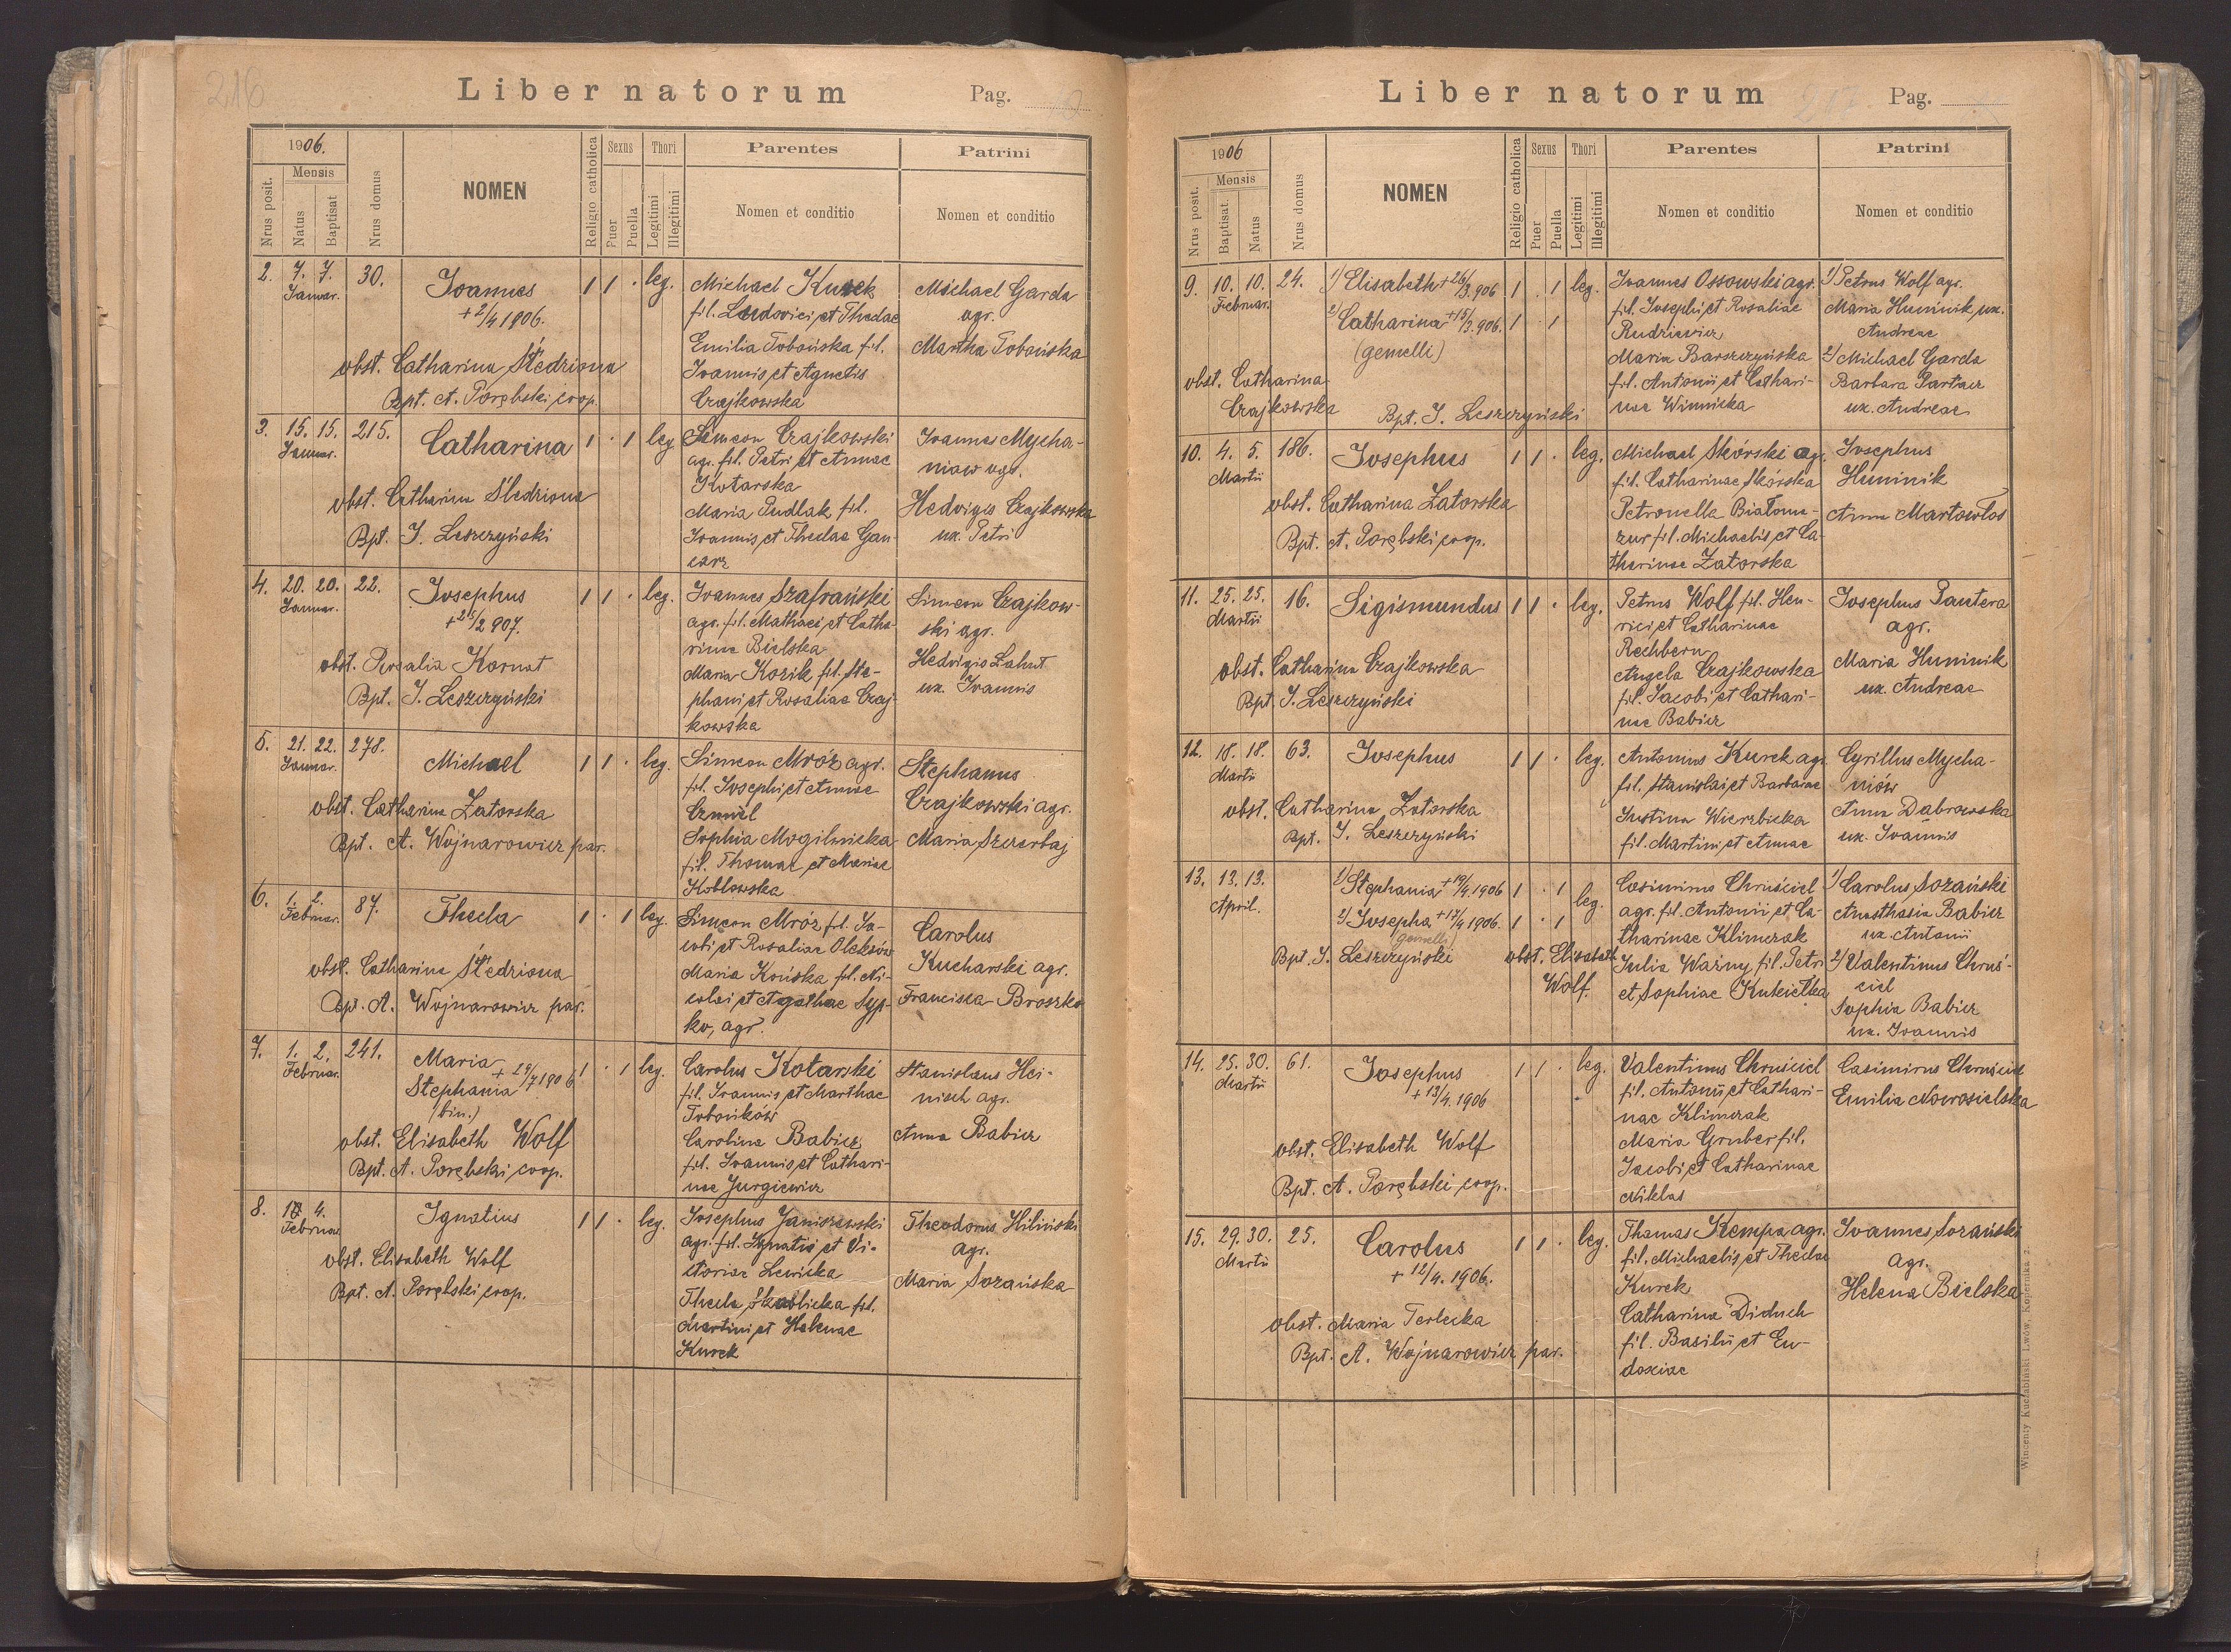 216
Liber natorum Pag.
1906.
Nrus posit.
Mensis
Natus
Baptisat
Nrus domus
NOMEN
Religio catholica
Sexus
Puer
Puella
Thori
Legitimi
Illegitimi
Parentes
Nomen et conditio
Patrini
Nomen et conditio
2. 7. 7. 30.
Januar.
Joannes
+ 2/4 1906.
obst. Catharina Śledziona
Bpt. A. Porębski, coop.
1 1 . leg.
Michael Kurek
fil. Ludovici, et Theclae
Emilia Tobońska fil.
Joannis, et Agnetis
Czajkowska
Michael Garda
agr.
Martha Tobońska
3. 15. 15. 215.
Januar.
Catharina
obst. Catharina Śledziona
Bpt. J. Leszczyński
1 . 1 leg.
Simeon Czajkowski
agr. fil. Petri, et Annae
Kotarska
Maria Pudlak fil.
Joannis, et Theclae Gan-
carz
Joannes Mycha-
niow agr.
Hedvigis Czajkowska
ux. Petri
4. 20. 20. 22.
Januar.
Josephus
+ 25/2 907.
obst. Rosalia Kornat
Bpt. J. Leszczyński
1 1 . leg.
Joannes Szafrański
agr. fil. Mathaei, et Catha-
rinae Bielska
Maria Kozik fil. Ste-
phani, et Rosaliae Czaj-
kowska
Simeon Czajkow-
ski agr.
Hedvigis Lahut
ux. Joannis
5. 21. 22. 278.
Januar.
Michael
obst. Catharina Zatorska
Bpt. A. Wojnarowicz par.
1 1 . leg.
Simeon Mróz agr.
fil. Josephi, et Annae
Czmil
Sophia Mogilnicka
fil. Thomae, et Mariae
Kozlowska
Stephanus
Czajkowski agr.
Maria Szczerbaj
6. 1. 2. 87.
Februar.
Thecla
obst. Catharina Śledziona
Bpt. A. Wojnarowicz par.
1 . 1 leg.
Simeon Mróz fil. Ja-
cobi, et Rosaliae Oleksów
Maria Końska fil. Ni-
colai, et Agathae Syp-
ko, agr.
Carolus
Kucharski agr.
Francisca Broszko
7. 1. 2. 241.
Februar.
Maria
Stephania + 28/7 1806
(bin.)
obst. Elisabeth Wolf
Bpt. A. Porębski, coop.
1 . 1 leg.
Carolus Kotarski
fil. Joannis, et Marthae
Tobońków
Carolina Babicz
fil. Joannis, et Cathari-
nae Jurgiewicz
Stanislaus Hei-
nisch agr.
Anna Babicz
8. 4.
Februar
Ignatius
obst. Elisabeth Wolf
Bpt. A. Porębski, coop.
1 1 . leg.
Josephus Janiszewski
agr. fil. Ignatii, et Vi-
ctoriae Lewicka
Thecla Skablicka fil.
Martini, et Helenae
Kurek
Theodorus Hiliński
agr.
Maria Sozańska
Liber natorum 217 Pag.
1906
Nrus posit.
Mensis
Baptisat.
Natus
Nrus domus
NOMEN
Religio catholica
Sexus
Puer
Puella
Thori
Legitimi
Illegitimi
Parentes
Nomen et conditio
Patrini
Nomen et conditio
9. 10. 10. 24.
Februar.
1) Elisabeth + 26/3.906
2) Catharina + 15/3.906.
(gemelli)
obst. Catharina
Czajkowska
Bpt. J. Leszczyński
1 . 1 leg.
1 . 1
Joannes Ossowski agr.
fil. Josephi, et Rosaliae
Rudziewicz
Maria Barszczyńska
fil. Antonii, et Cathari-
nae Winnicka
1) Petrus Wolf agr.
Maria Huminik, ux.
Andreae
2) Michael Garda
Barbara Partacz
ux. Andreae
10. 4. 5. 186.
Martii
Josephus
obst. Catharina Zatorska
Bpt. A. Porębski, coop.
1 1 . leg.
Michael Skórski agr.
fil. Catharinae Skórska
Petronella Białoma-
zur fil. Michaelis, et Ca-
tharinae Zatorska
Josephus
Huminik
Anna Martowłos
11. 25. 25. 16.
Martii
Sigismundus
obst. Catharina Czajkowska
Bpt. J. Leszczyński
1 1 . leg.
Petrus Wolf fil. Hen-
rici, et Catharinae
Rechbern
Angela Czajkowska
fil. Jacobi, et Cathari-
nae Babicz
Josephus Pantera
agr.
Maria Huminik
ux. Andreae
12. 18. 18. 63.
Martii
Josephus
obst. Catharina Zatorska
Bpt. J. Leszczyński
1 1 . leg.
Antonius Kurek agr.
fil. Stanislai, et Barbarae
Justina Wierzbicka
fil. Martini, et Annae
Cyrillus Mycha-
niów
Anna Dabrowska
ux. Joannis
13. 13. 13.
April.
1) Stephania + 19/4 1906
2) Josepha + 17/4 1906.
(gemelli)
Bpt. J. Leszczyński
obst. Elisabeth
Wolf.
1 . 1 leg.
1 . 1
Casimirus Chruściel
agr. fil. Antonii, et Ca-
tharinae Klimczak
Julia Ważny, fil. Petri
et Sophiae Kukiełka
1) Carolus Sozański
Anasthasia Babicz
ux. Antonii
2) Valentinus Chruś-
ciel
Sophia Babicz
ux. Joannis
14. 25. 30. 61.
Martii
Josephus
+ 13/4. 1906
obst. Elisabeth Wolf
Bpt. A. Porębski, coop.
1 1 . leg.
Valentinus Chruściel
fil. Antonii, et Cathari-
nae Klimczak
Maria Gruber fil.
Jacobi, et Catharinae
Niklas
Casimirus Chruściel
Emilia Nowosielska
15. 29. 30. 25.
Martii
Carolus
+ 12/4. 1906.
obst. Maria Terlecka
Bpt. A. Wojnarowicz par.
1 1 . leg.
Thomas Kempa agr.
fil. Michaelis, et Theclae
Kurek
Catharina Diduch
fil. Basilii, et Eu-
doxiae
Joannes Sozański
agr.
Helena Bielska
Wincenty Kuczabiński Lwów, Kopernika 2.